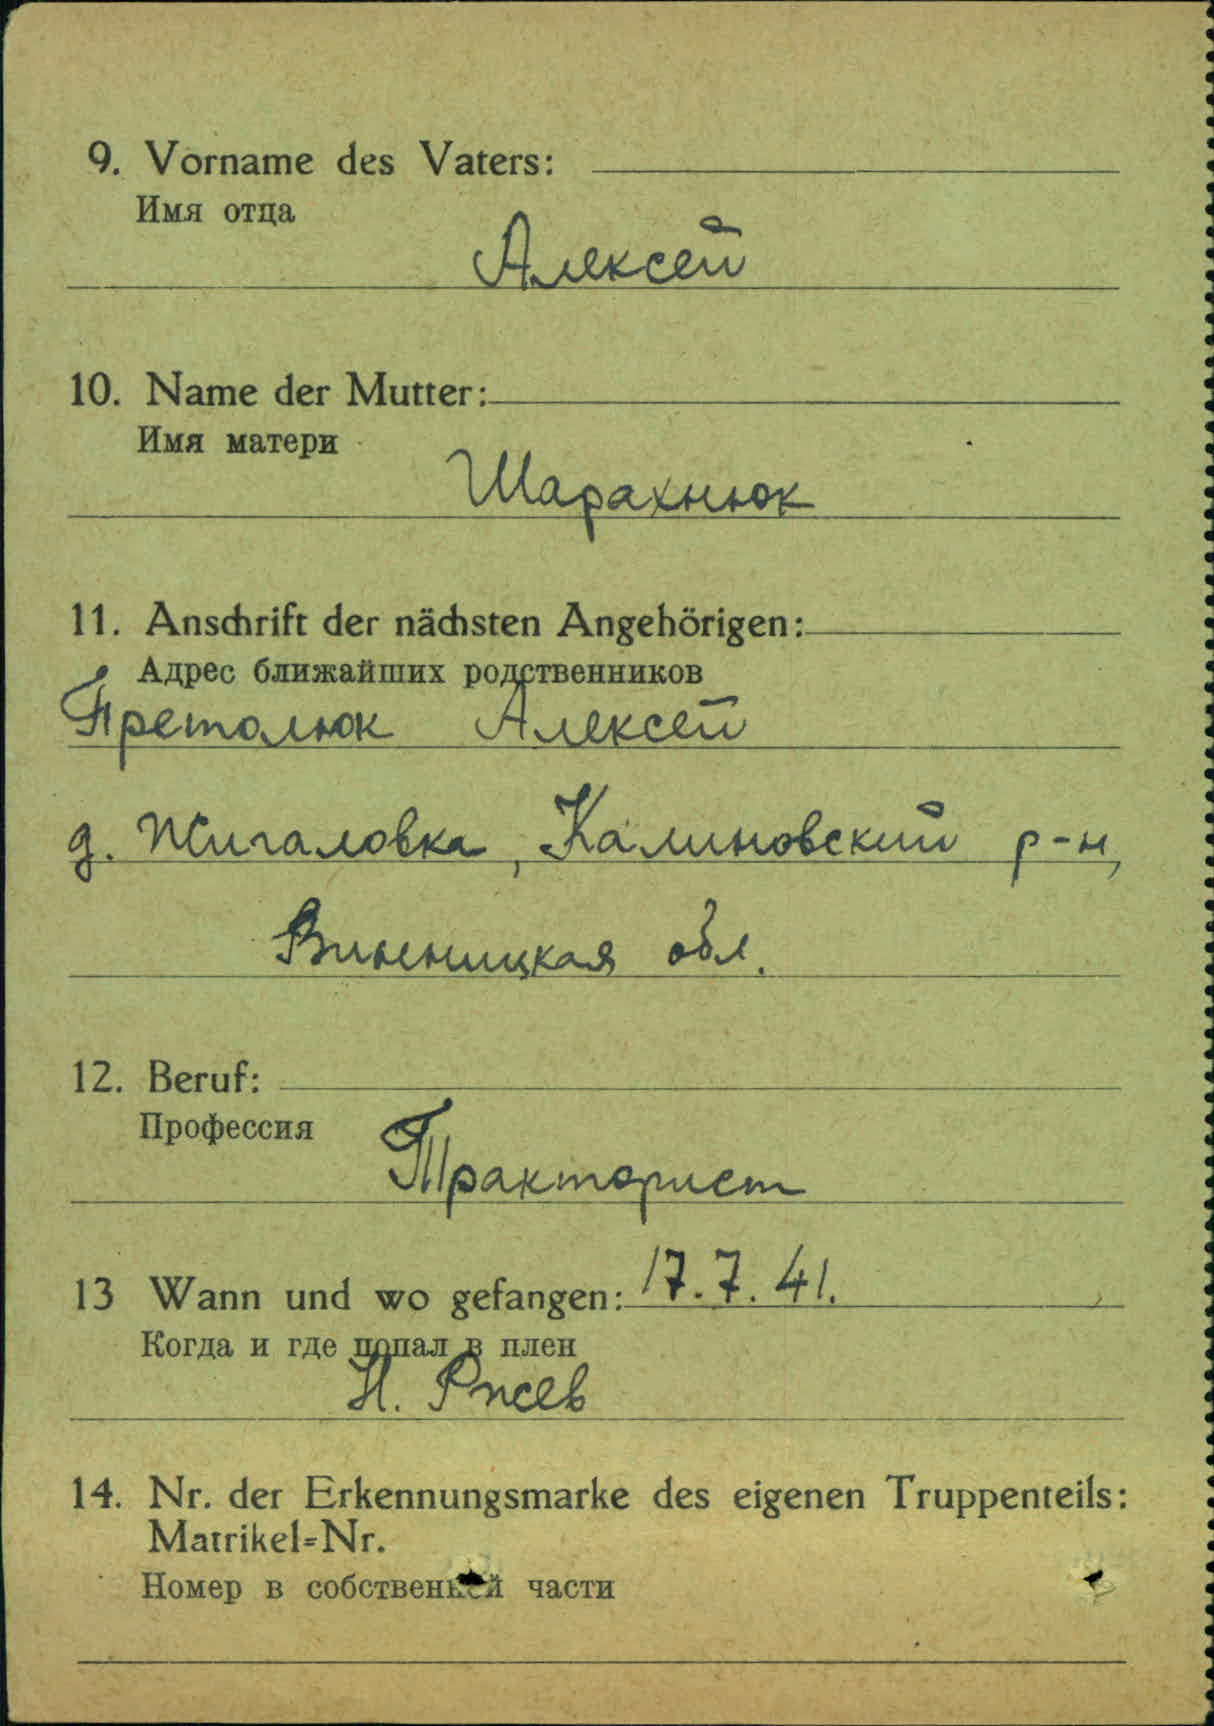 9. Vorname des Vaters:
Имя отца
Алексей
10. Name der Mutter:
Имя матери
Шарахнюк
11. Anschrift der nächsten Angehörigen:
Адрес ближайших родственников
Претолюк Алексей
д. Жигаловка, Калиновский р-н,
Винницкая обл.
12. Beruf:
Профессия
Тракторист
13 Wann und wo gefangen: 17.7.41.
Когда и где попал в плен
Н. Ржев
14. Nr. der Erkennungsmarke des eigenen Truppenteils:
Matrikel=Nr.
Номер в собственной части